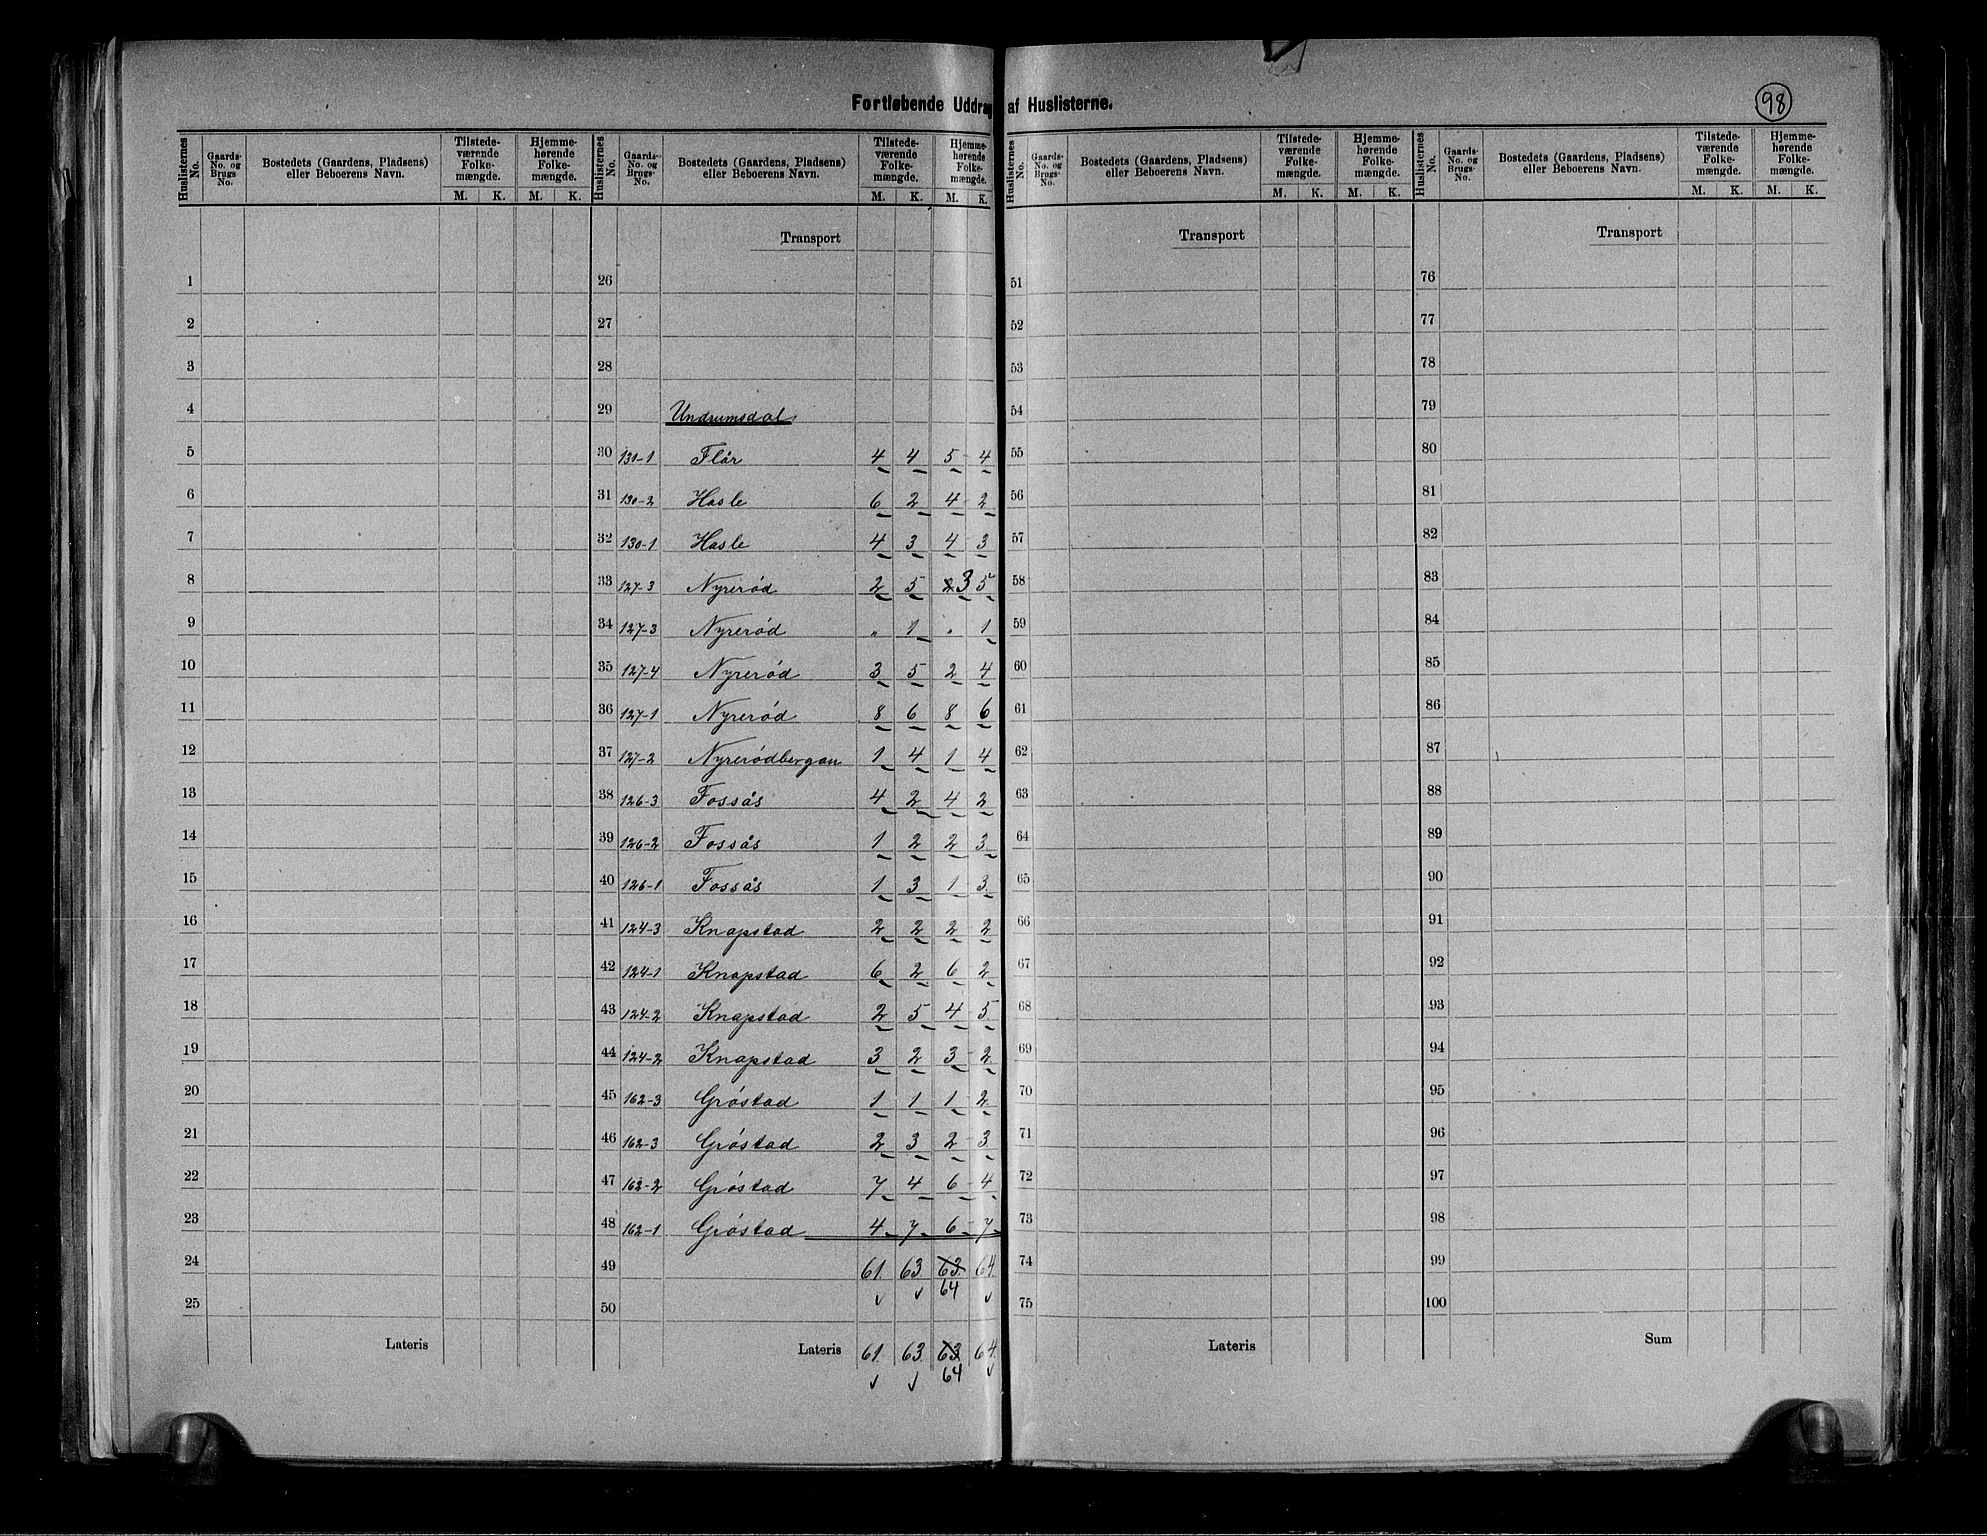 Fortløbende Uddrag af Huslisterne.
98
Huslisternes No. | Gaards-No. og Brugs-No. | Bostedets (Gaardens, Pladsens) eller Beboerens Navn. | Tilstedeværende Folkemængde. M. K. | Hjemmehørende Folkemængde. M. K.
1
2
3
4
5
6
7
8
9
10
11
12
13
14
15
16
17
18
19
20
21
22
23
24
25
Lateris
Huslisternes No. | Gaards-No. og Brugs-No. | Bostedets (Gaardens, Pladsens) eller Beboerens Navn. | Tilstedeværende Folkemængde. M. K. | Hjemmehørende Folkemængde. M. K.
Transport
26
27
28
29 Undrumsdal
30 131-1 Flår 4 4 5 4
31 130-2 Hasle 6 2 4 2
32 130-1 Hasle 4 3 4 3
33 127-3 Nyrerød 2 5 2 3 5
34 127-3 Nyrerød " 1 " 1
35 127-4 Nyrerød 3 5 2 4
36 127-1 Nyrerød 8 6 8 6
37 127-2 Nyrerødbergan 1 4 1 4
38 126-3 Fossås 4 2 4 2
39 126-2 Fossås 1 2 2 3
40 126-1 Fossås 1 3 1 3
41 124-3 Knapstad 2 2 2 2
42 124-1 Knapstad 6 2 6 2
43 124-2 Knapstad 2 5 4 5
44 124-2 Knapstad 3 2 3 2
45 162-3 Gróstad 1 1 1 2
46 162-3 Gróstad 2 3 2 3
47 162-2 Gróstad 7 4 6 4
48 162-1 Gróstad 4 7 6 7
49 61. 63. 63. 64.
64
50
Lateris 61. 63. 63. 64.
64
Huslisternes No. | Gaards-No. og Brugs-No. | Bostedets (Gaardens, Pladsens) eller Beboerens Navn. | Tilstedeværende Folkemængde. M. K. | Hjemmehørende Folkemængde. M. K.
Transport
51
52
53
54
55
56
57
58
59
60
61
62
63
64
65
66
67
68
69
70
71
72
73
74
75
Lateris
Huslisternes No. | Gaards-No. og Brugs-No. | Bostedets (Gaardens, Pladsens) eller Beboerens Navn. | Tilstedeværende Folkemængde. M. K. | Hjemmehørende Folkemængde. M. K.
Transport
76
77
78
79
80
81
82
83
84
85
86
87
88
89
90
91
92
93
94
95
96
97
98
99
100
Sum